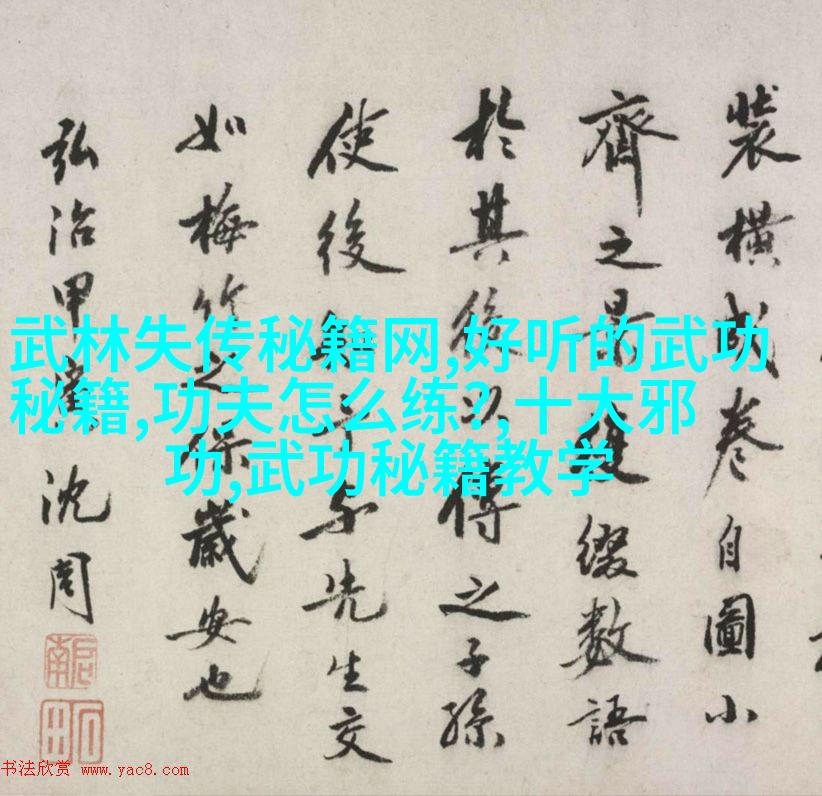 武林失传秘籍网,好听的武功
秘籍,功夫怎么练?,十大邪
功,武功秘籍教学
裝橫成卷自圖小
齊之景綴數語
於其後以傳之子孫
使後予与先生交
如梅竹之保歲安也
弘治甲寅沈周
啟南
石田
书法欣赏 www.yac8.com